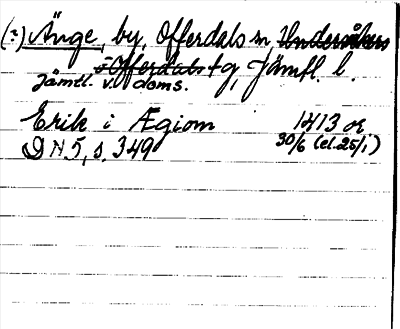 (=) Änge, by, Offerdals sn, Undersåkers
o Offerdals tg, Jämtl. l.
Jämtl. v. doms.
Erik i Ægiom 1413 or
DN 5, s. 349 30/6 (el. 25/1)